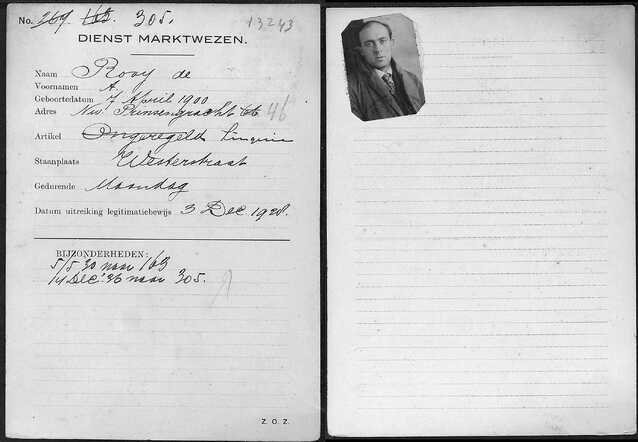 No. 269. 163. 305.
13243
DIENST MARKTWEZEN.
Naam Rooy de
Voornamen A.
Geboortedatum 7 April 1900
Adres Nw. Prinsengracht 66 46
Artikel Ongeregeld Lingerie
Staanplaats Westerstraat
Gedurende Maandag
Datum uitreiking legitimatiebewijs 3 Dec. 1928.
BIJZONDERHEDEN:
5/5 30 naar 163
14 Dec. '36 naar 305.
Z. O. Z.